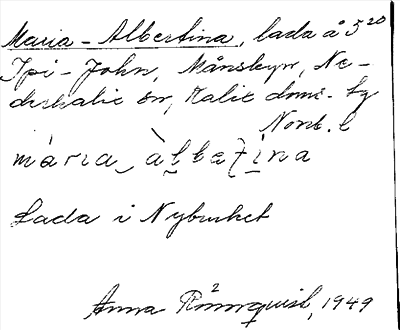 Maria-Albertina, lada å 5²⁰
Ipi-John, Månsbyn, Ne-
derkalix sn, Kalix doms. tg
Norrb. l
mária àlbeţina
Lada i Nybruket
Anna Rönnquist, 1949